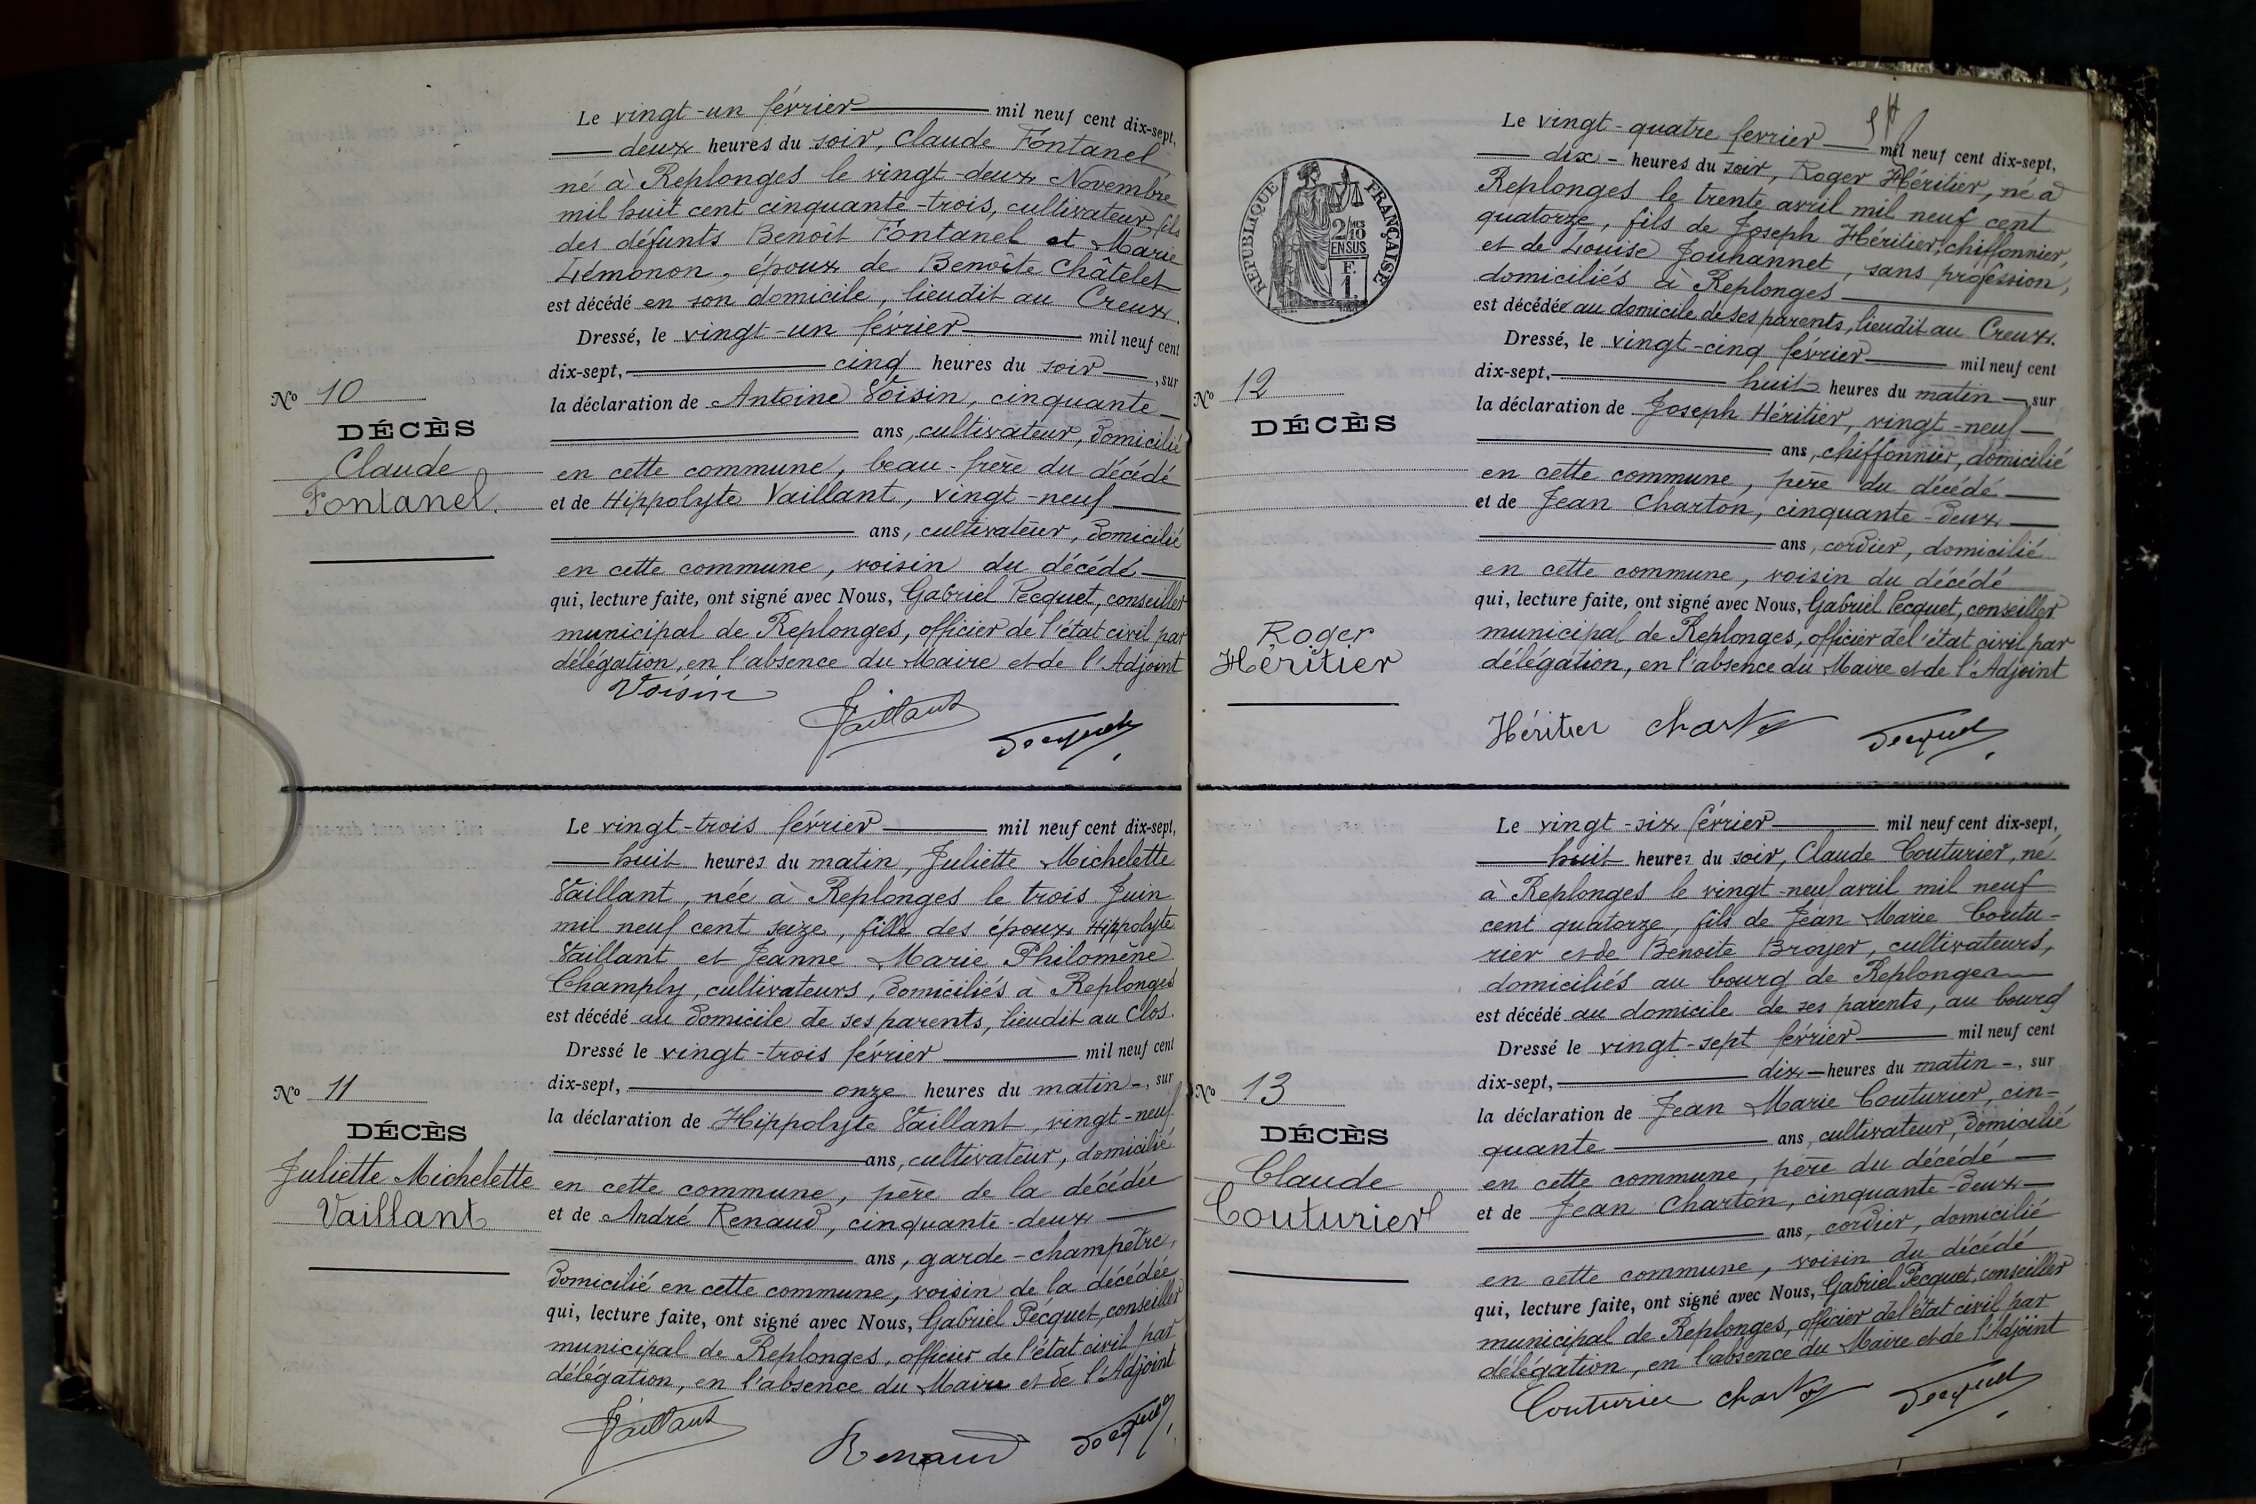 Le vingt-un février mil neuf cent dix-sept,
deux heures du soir, Claude Fontanel
né à Replonges le vingt-deux Novembre
mil huit cent cinquante-trois, cultivateur, fils
des défunts Benoît Fontanel et Marie
Lémonon, époux de Benoîte Châtelet
est décédé en son domicile, lieudit au Creux.
Dressé, le vingt-un février mil neuf cent
dix-sept, cinq heures du soir, sur
la déclaration de Antoine Voisin, cinquante
ans, cultivateur, domicilié
en cette commune, beau-frère du décédé
et de Hippolyte Vaillant, vingt-neuf
ans, cultivateur, domicilié
en cette commune, voisin du décédé
qui, lecture faite, ont signé avec Nous, Gabriel Pecquet, conseiller
municipal de Replonges, officier de l'état civil par
délégation, en l'absence du Maire et de l'Adjoint
Voisin Vaillant Pecquet
No 10
DÉCÈS
Claude
Fontanel.
Le vingt-trois février mil neuf cent dix-sept,
huit heures du matin, Juliette Michelette
Vaillant, née à Replonges le trois Juin
mil neuf cent seize, fille des époux Hippolyte
Vaillant et Jeanne Marie Philomène
Champly, cultivateurs, domiciliés à Replonges
est décédé au domicile de ses parents, lieudit au Clos.
Dressé le vingt-trois février mil neuf cent
dix-sept, onze heures du matin, sur
la déclaration de Hippolyte Vaillant, vingt-neuf
ans, cultivateur, domicilié
en cette commune, père de la décédée
et de André Renaud, cinquante-deux
ans, garde-champêtre,
domicilié en cette commune, voisin de la décédée
qui, lecture faite, ont signé avec Nous, Gabriel Pecquet, conseiller
municipal de Replonges, officier de l'état civil par
délégation, en l'absence du Maire et de l'Adjoint
Vaillant Renaud Pecquet
No 11
DÉCÈS
Juliette Michelette
Vaillant
Le vingt-quatre fevrier mil neuf cent dix-sept,
dix heures du soir, Roger Héritier, né à
Replonges le trente avril mil neuf cent
quatorze, fils de Joseph Héritier, chiffonnier,
et de Louise Jouhannet, sans profession,
domiciliés à Replonges
est décédé au domicile de ses parents, lieudit au Creux.
Dressé, le vingt-cinq février mil neuf cent
dix-sept, huit heures du matin, sur
la déclaration de Joseph Héritier, vingt-neuf
ans, chiffonnier, domicilié
en cette commune, père du décédé
et de Jean Charton, cinquante-deux
ans, cordier, domicilié
en cette commune, voisin du décédé
qui, lecture faite, ont signé avec Nous, Gabriel Pecquet, conseiller
municipal de Replonges, officier de l'état civil par
délégation, en l'absence du Maire et de l'Adjoint
Héritier Charton Pecquet
RÉPUBLIQUE FRANÇAISE
2/10 MES
EN SUS
F.
1.
No 12
DÉCÈS
Roger
Héritier
Le vingt-six février mil neuf cent dix-sept,
huit heures du soir, Claude Couturier, né
à Replonges le vingt-neuf avril mil neuf
cent quatorze, fils de Jean Marie Coutu-
rier et de Benoite Broyer, cultivateurs,
domiciliés au bourg de Replonges
est décédé au domicile de ses parents, au bourg
Dressé le vingt-sept février mil neuf cent
dix-sept, dix heures du matin, sur
la déclaration de Jean Marie Couturier, cin-
quante ans, cultivateur, domicilié
en cette commune, père du décédé
et de Jean Charton, cinquante-deux
ans, cordier, domicilié
en cette commune, voisin du décédé
qui, lecture faite, ont signé avec Nous, Gabriel Pecquet, conseiller
municipal de Replonges, officier de l'état civil par
délégation, en l'absence du Maire et de l'Adjoint
Couturier Charton Pecquet
No 13
DÉCÈS
Claude
Couturier